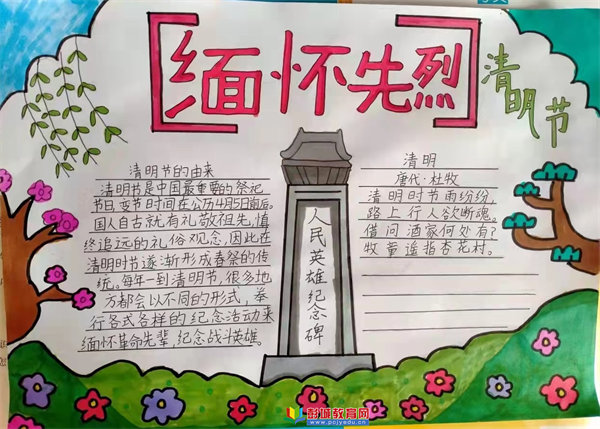 缅怀先烈
清明节
清明节的由来
清明节是中国最重要的祭祀
节日,变节时间在公历4月5日前后。
国人自古就有礼敬祖先,慎
终追远的礼俗观念,因此在
清明时节逐渐形成春祭的传
统。每年一到清明节,很多地
方都会以不同的形式,举
行各式各样的纪念活动来
缅怀革命先辈,纪念战斗英雄。
人民英雄纪念碑
清明
唐代·杜牧
清明时节雨纷纷,
路上行人欲断魂。
借问酒家何处有?
牧童遥指杏花村。
彭城教育网
www.pcjyedu.cn